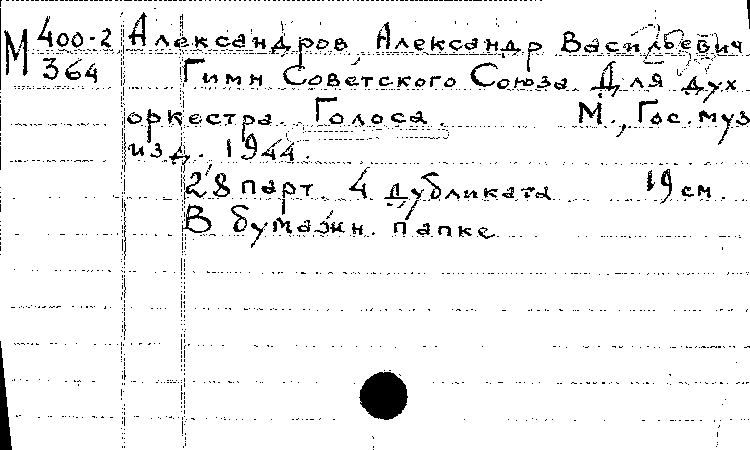 М 400-2 Александров, Александр Васильевич
364 Гимн Советского Союза. Для дух
оркестра. Голоса. М., Гос. муз
изд., 1944.
28 парт. 4 дубликата 19 см.
В бумажн. папке